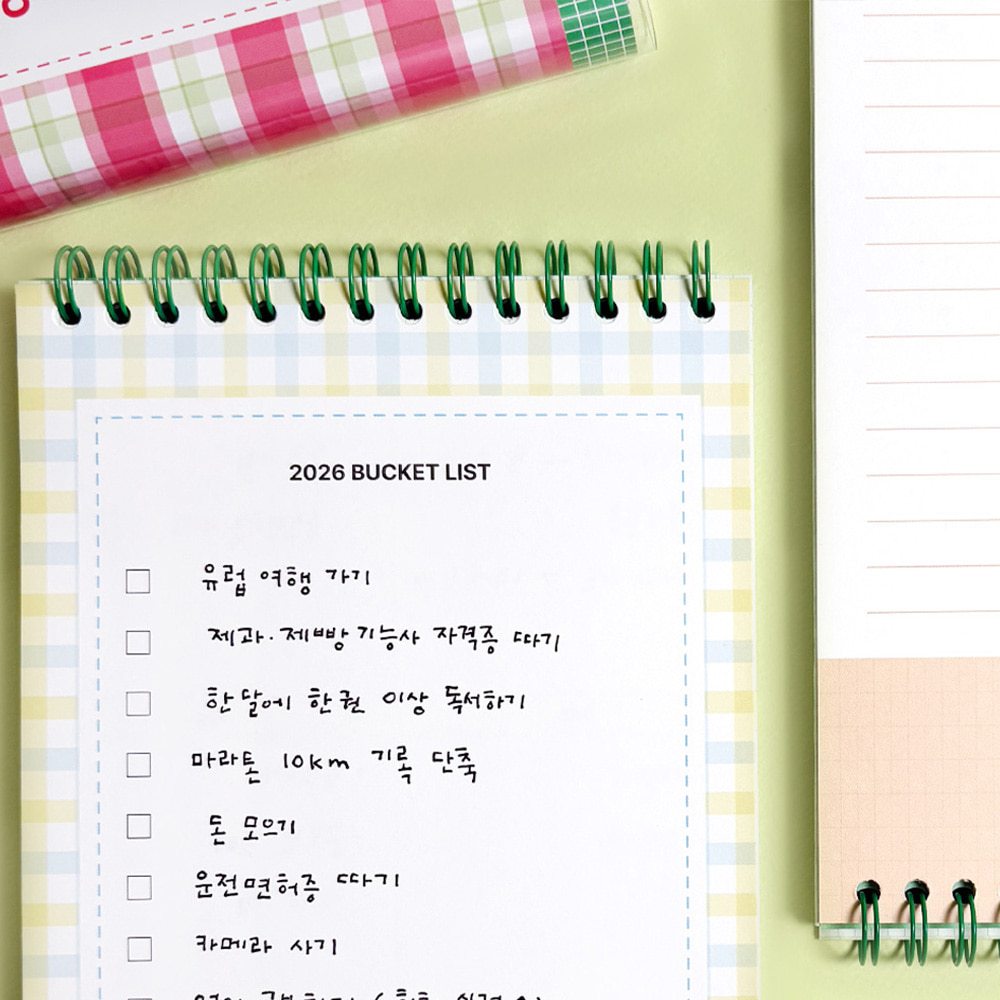 2026 BUCKET LIST
유럽 여행 가기
제과·제빵기능사 자격증 따기
한 달에 한 권 이상 독서하기
마라톤 10km 기록 단축
돈 모으기
운전면허증 따기
카메라 사기